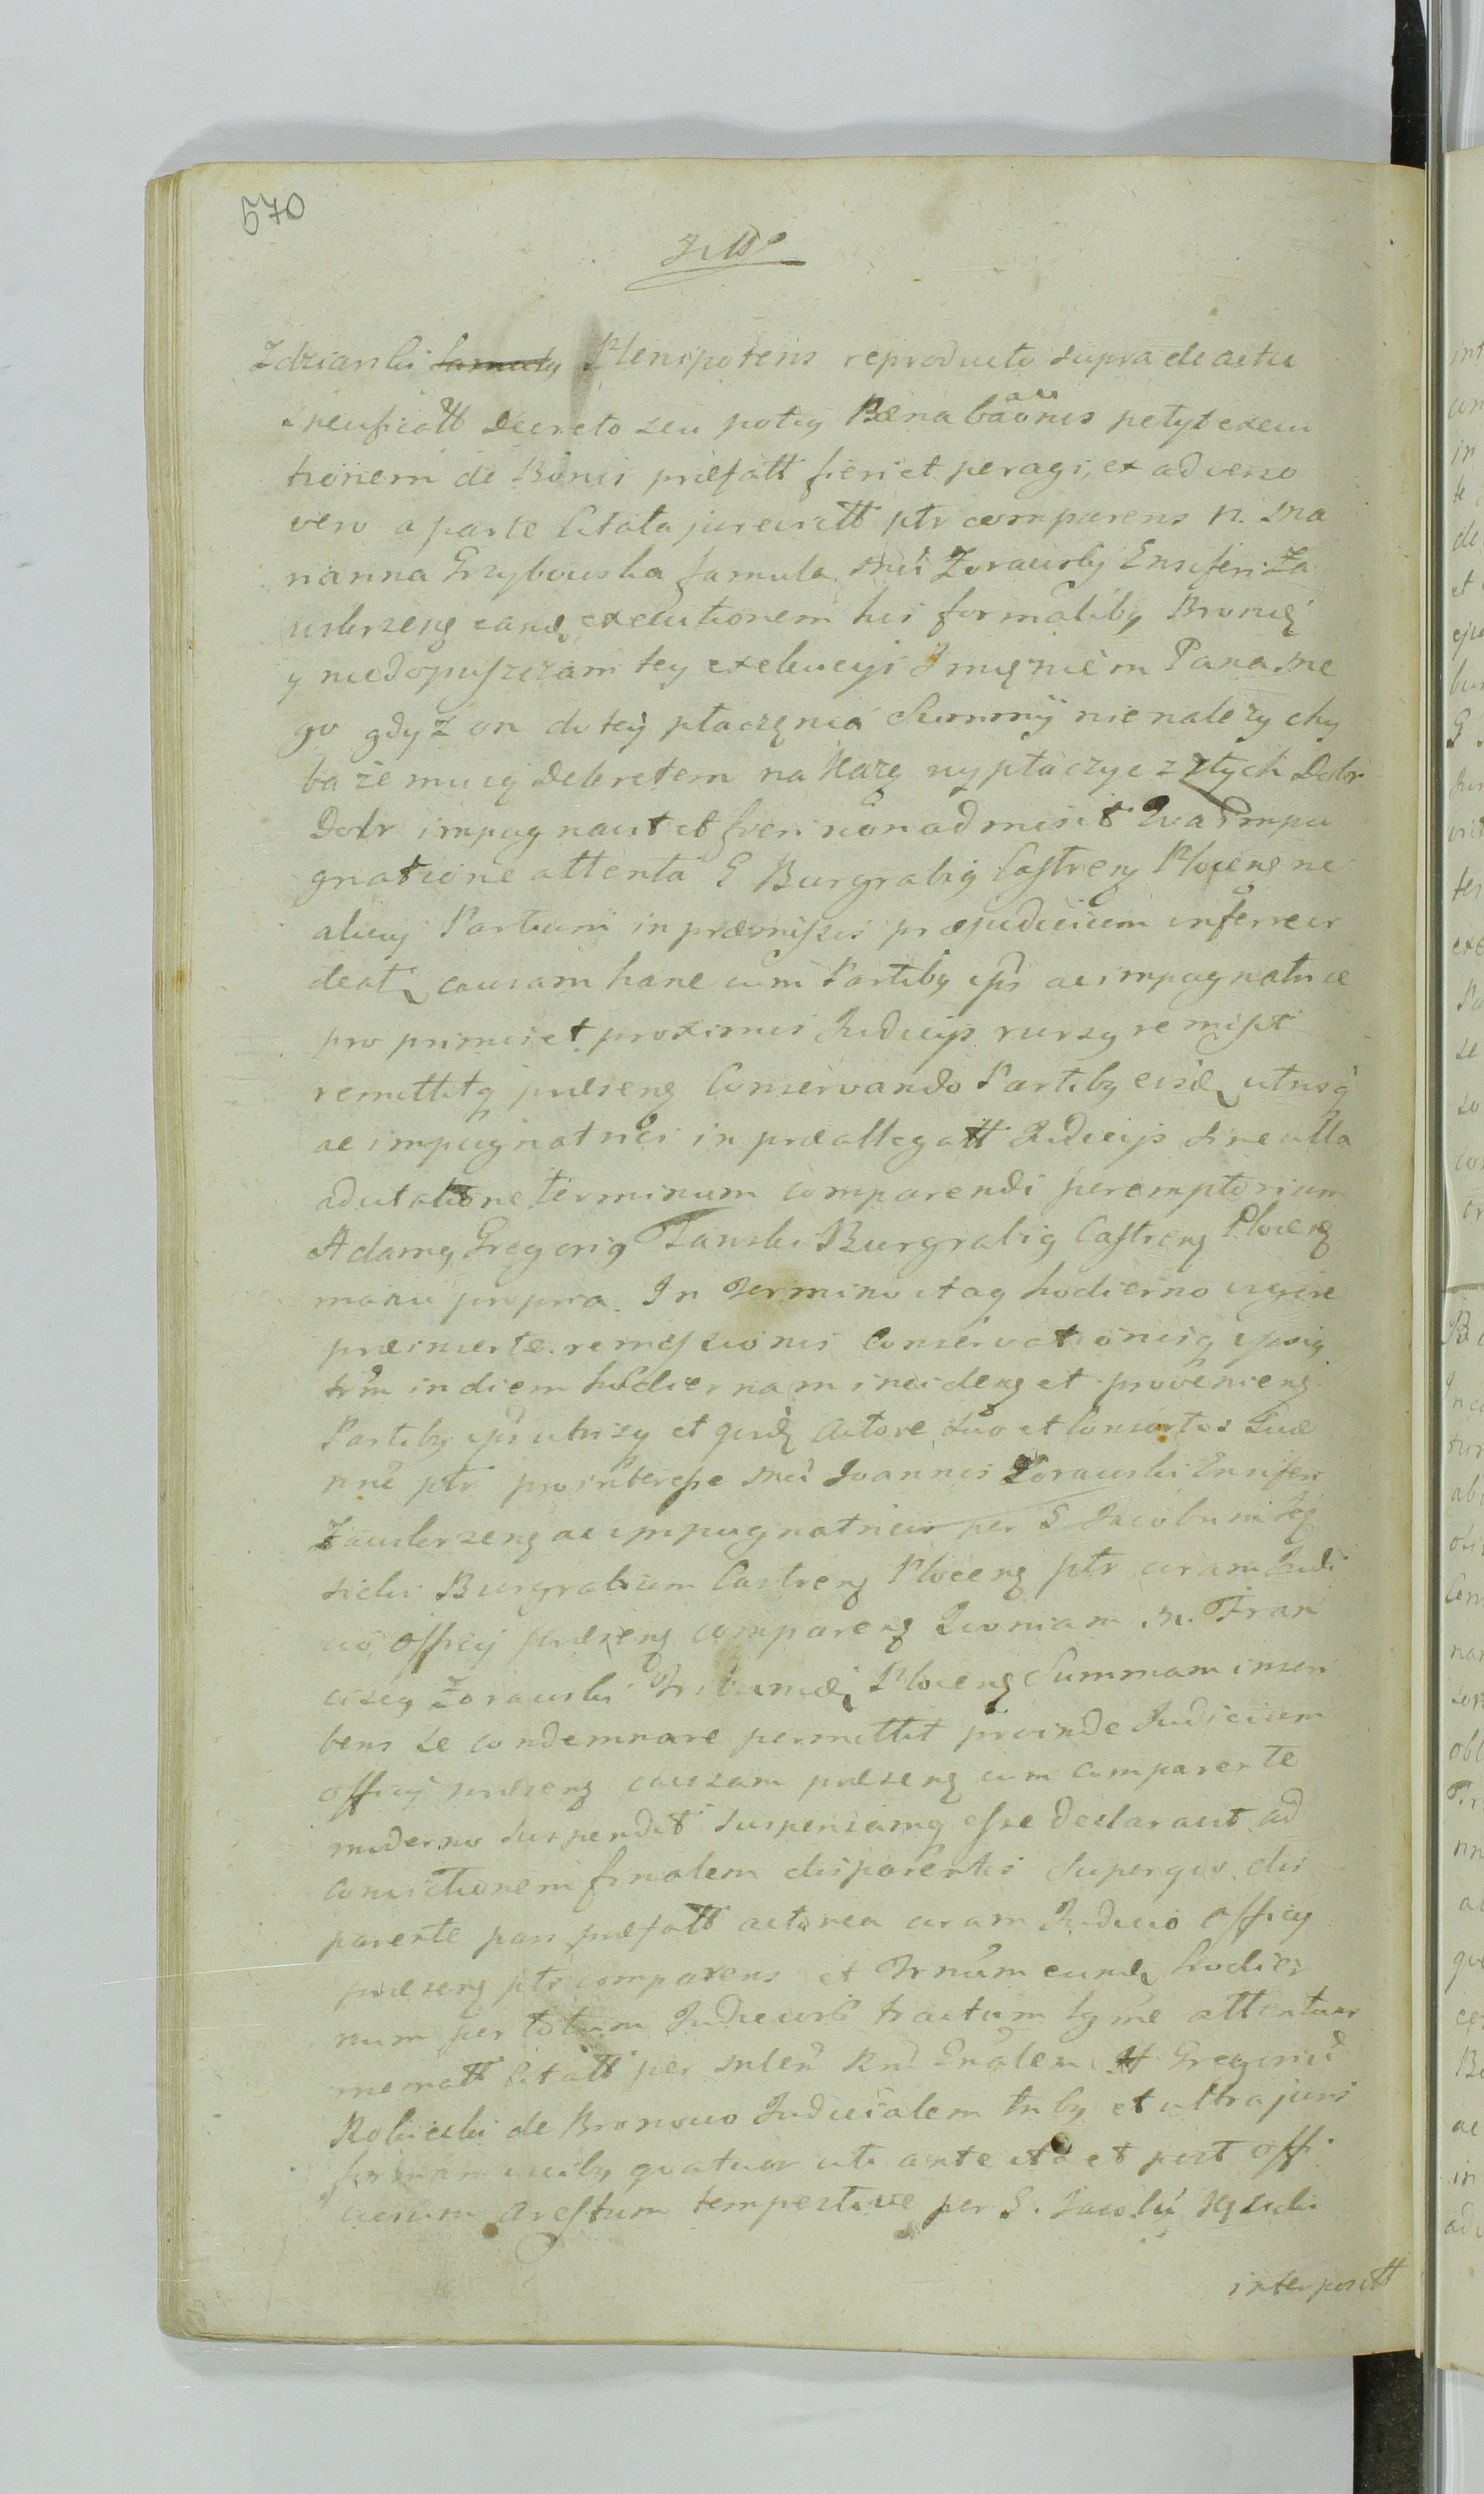 570
Zdziarski Plenipotens reproducto supra de actu
specificatt Decreto seu potiq Bænabaonis petyt execu
tionem de Bonis præfatt fieri et peragi, ex adverso
vero a parte Citata jurevictt ptr comparens n. Ma
rianna Grzybowska famula Mci Zorawsky Ensiferi Za
wskrzeng eandē executionem his formalibq Bronię
y niedopuszczam tey exekucyi Imięniem Pana Me
go gdyż on do tey płaczęnia Summy nie nalezy chy
ba że mu ię Dekretem na Każę wypłaczyc z tych Dobr
Dobr impugnavit et fieri non admisit Qva Impu
gnatione attenta G Burgrabiq Castreng Ploceng ne
alicuj Partium in præmissis præjudicium inferre vi
deat, causam hanc cum Partibq ipsis ac impugnatrice
pro primis et proximis Judicijs rursq remisit
remittitq præseng Conservando Partibq eisdē utrisq
ac impugnatrici in præallegatt Judicijs sine ulla
adcitatione terminum comparendi peremptorium
Adamq Gregoriq Tanski Burgrabiq Castreng Ploceng
manu propria. In Termino itaq hodierno vigore
præinsertæ remissionis Conservationisq ipsiq
trm in diem hodiernam incideng et provenieng
Partibq ipsis utrisq et qvidē Actore suo et Consortis suæ
nne ptr pro interesse Mci Joannis Zorawski Ensiferi
Zawskrzeng ac impugnatricis per G Jacobum
sicki Burgrabium Castreng Ploceng ptr coram Judi
cio officij præseng compareng Qvoniam M. Fran
ciscq Zorawski Ploceng Summam inscri
bens se condemnare permittit proinde Judicium
officij præseng causam præseng cum comparente
moderno suspendit suspensamq esse declaravit ad
convictionem finalem disparentis Super qvo dis
parente pars præfatt actorea coram Judicio officij
præseng ptr comparens et Trnum eundē hodier
num per totum Judicior tractum lgme attentavr
memratt Citatt per Mlem Rnd Gnalem H Gregoriū
Robieski de Bronowo Judicialem tribq et ultra juris
formam vicibq qvatuor uti ante ita et post offi
ciosum Arestum tempestive per G. Jacobū
interpositt